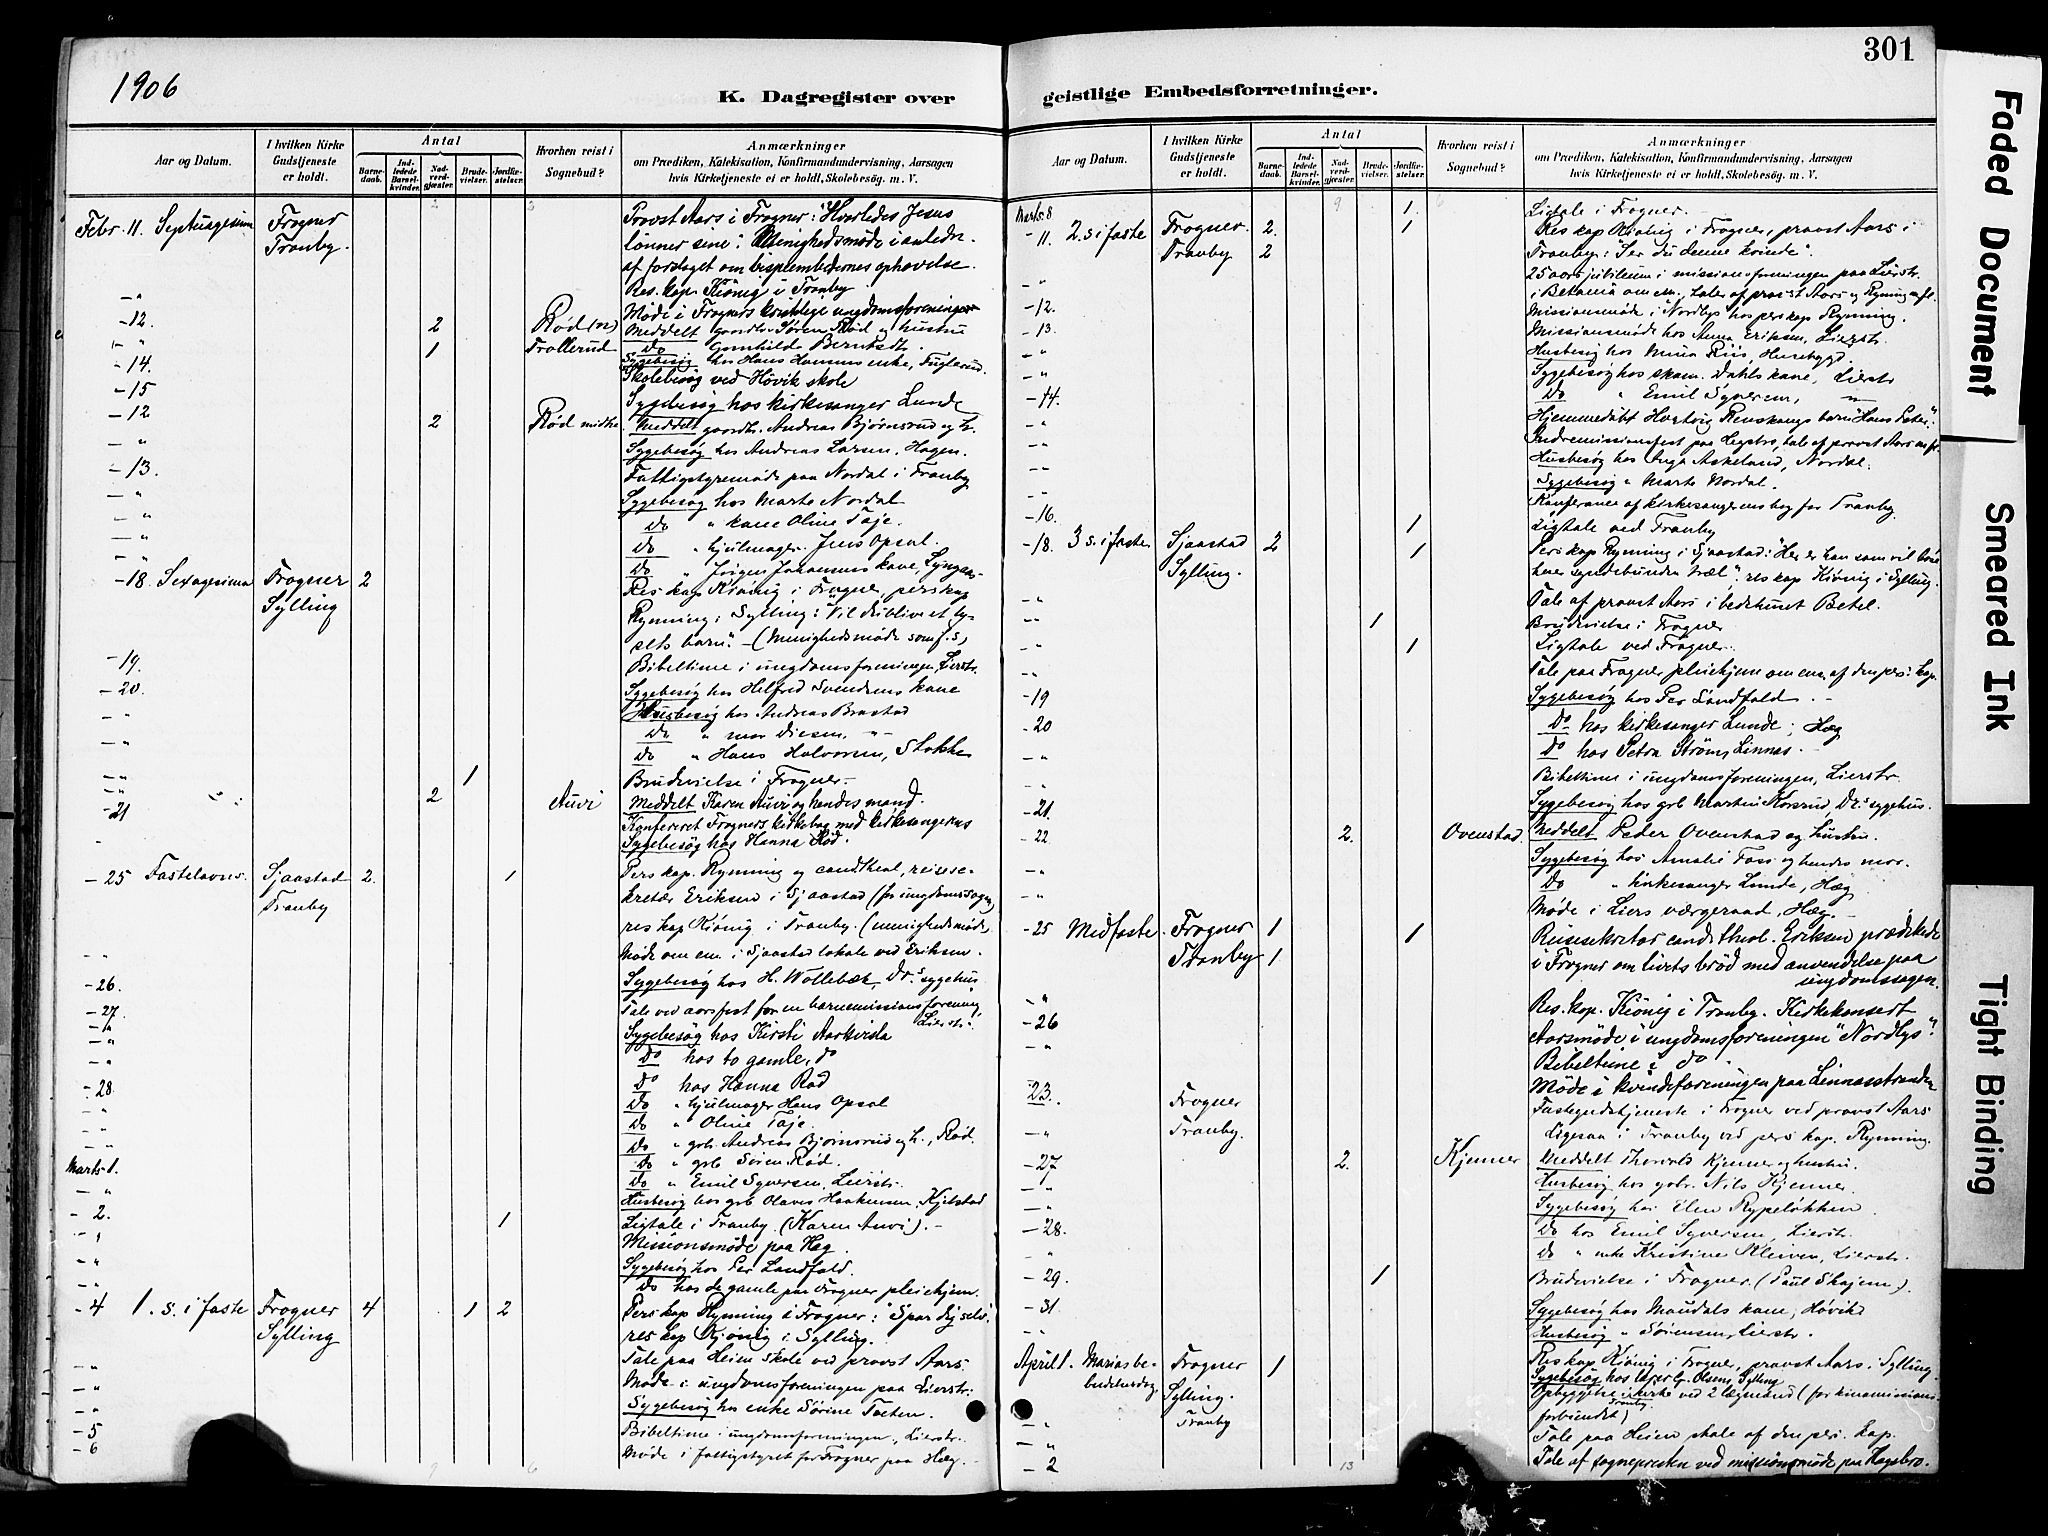 1906
K. Dagregister over
Aar og Datum.
I hvilken Kirke Gudstjeneste er holdt.
Antal
Barnedaab.
Indledede Barselkvinder.
Nadverdgjæster.
Brudevielser.
Jordfæstelser.
Hvorhen reist i Sognebud?
Anmærkninger
om Prædiken, Katekisation, Konfirmandundervisning, Aarsagen
hvis Kirketjeneste ei er holdt, Skolebesög m. V.
Febr. 11. Septuagesima Frogner Provst Aars i Frogner: "Hvorledes Jesus
Tranby. lönner sine". Menighedsmöde i anledn.
af forslaget om bispembedernes ophævelse.
Res. kap. Kiönig i Tranby
-" Möde i Frogners kristelige ungdomsforening
-12. 2 Rød (n) Meddelt gaardbr. Sören Röd og hustru
-" 1 Trollerud do Gunhilda Berntsdtr.
-14. Sygebesög hos Hans Hansens enke, Fuglerud.
-" Skolebesög ved Hövik skole
-15 Sygebesög hos kirkesanger Lunde
-12 2 Rød midtre Meddelt gaardbr. Andreas Björnsrud og h.
-" Sygebesög hos Andreas Larsen, Hagen.
-13. Fattigstyremöde paa Nordal i Tranby
-" Sygebesög hos Marte Nordal
-" do " kone Oline Taje.
-" do " hjulmager Jens Opsal.
-" do " Jörgen Johansens kone,
-18. Sexagesima Frogner 2 Res kap Kiönig i Frogner, perskap
Sylling Rynning i Sylling: "Vil du blive et ly-
sets barn". - (Menighedsmöde som f. s)
-19. Bibeltime i ungdomsforeningen, Lierstr.
-20. Sygebesög hos Helfred Svendsens kone
-" Husbesög hos Andreas Brastad
-" do " mor Diesen, -"-
-" do " Hans Halvorsen, Stokke
-" 1 Brudevielse i Frogner.
-" 2 Auvi Meddelt Karen Auvi og hendes mand.
-21 Konfereret Frogners kirkebog med kirkesangerens
- Sygebesög hos Hanna Röd.
-25 Fastelavns. Sjaastad 2. 1 Pers kap. Rynning og cand theol, reisese-
Tranby kretær Eriksen i Sjaastad (for ungdomssagen)
res kap Kiönig i Tranby. (menighedsmöde
-" Möde om em. i Sjaastad lokale ved Eriksen.
-26. Sygebesög hos H. Wollebæk, Dr.s sygehus
-27. Tale ved aarsfest for en barnemissionsforening
Lierstr.
-" Sygebesög hos Kirsti Aarkvisla
-" do hos to gamle, do
-" do hos Hanna Röd
-28. do " hjulmager Hans Opsal
-" do " Oline Taje.
-" do " grb. Andreas Björnsrud og h., Röd.
-" do " grb Sören Röd.
Marts 1. do " Emil Syversen, Lierstr.
-" Husbesög hos grb Olaves Haakensen, Kjelstad
-2. 1 Ligtale i Tranby (Karen Auvi). -
-" Missionsmöde paa Hæg.
-" Sygebesög hos Per Landfald.
-" do hos de gamle paa Frogner pleiehjem.
-4 1. s. i faste Frogner 4 1 2 Pers kap Rynning i Frogner: "Spar dig selv",
Sylling res kap Kjönig i Sylling.
-" Tale paa Heien skole ved provst Aars
-" Möde i ungdomsforeningen paa Lierstr.
-" Sygebesög hos enke Sörine Toften.
-5 Bibeltime i ungdomsforeningen, Lierstr.
-6 Möde i fattigstyret for Frogner paa Hæg. -
9 6
301
geistlige Embedsforretninger.
Aar og Datum.
I hvilken Kirke Gudstjeneste er holdt.
Antal
Barnedaab.
Indledede Barselkvinder.
Nadverdgjæster.
Brudevielser.
Jordfæstelser.
Hvorhen reist i Sognebud?
Anmærkninger
om Prædiken, Katekisation, Konfirmandundervisning, Aarsagen
hvis Kirketjeneste ei er holdt, Skolebesög m. V.
9 6
Marts 8 1 Ligtale i Frogner.
-11. 2. s. i faste Frogner. 2. 1 Res kap Kiönig i Frogner, provst Aars i
Tranby 2 Tranby: "Ser du denne kvinde".
-" 25 aars jubileum i missionsforeningen paa Lierstr.
i Betania om em., taler af provst Aars og Rynning m fl.
-12. Missionsmöde i Nordlys hos perskap Rynning.
-13. Missionsmöde hos Anna Eriksen, Lierstr.
-" Husbesög hos Mina Riis, Hurebygd.
-" Sygebesög hos skom. Dahls kone, Lierstr
-14. do " Emil Syversen, -"-
-" Hjemmedöbt Hartvig Renskaugs barn "Hans Peter".
-" Indremissionsfest paa Legstro, tale af provst Aars m fl.
-" Husbesög hos Inga Askeland, Nordal.
-" Sygebesög " Marte Nordal.
-16. Konference af kirkesangerens bog for Tranby.
1 Ligtale ved Tranby
-18. 3 s. i faste. Sjaastad 2 1 Pers kap Rynning i Sjaastad: "Her er han som vil løse
Sylling. hver syndebunden træl". res kap Kiönig i Sylling.
-" Tale af provst Aars i bedehuset Betel.
-" 1 Brudevielse i Frogner
-" 1 Ligtale ved Frogner.
-" Tale paa Frogner pleiehjem om em. af den pers. kap.
-19 Sygebesög hos Per Landfald.
-20 do hos kirkesanger Lunde, Hæg
-" do hos Petra Ström, Linnas.
-" Bibeltime i ungdomsforeningen, Lierstr.
-21. Sygebesög hos grb Martin Korsrud, Dr.s sygehus.
-22 2. Ovenstad. Meddelt Peder Ovenstad og hustru.
-" Sygebesög hos Amalie Foss og hendes mor.
-" do " kirkesanger Lunde, Hæg
-" Möde i Liers værgeraad, Hæg. -
-25 Midfaste. Frogner 1 1 Reisesekretær cand theol. Eriksen prædikede
Tranby 1 i Frogner om livets bröd med anvendelse paa
ungdomssagen.
-" Res. kop. Kiönig i Tranby. Kirkekonsert
-26 Aarsmöde i ungdomsforeningen "Nordlys".
-" Bibeltime i do
Möde i kvindeforeningen paa Linnesstranden
23. Frogner Fastegudstjeneste i Frogner ved provst Aars
-" Tranby. Ligesaa i Tranby ved pers kap. Rynning.
-27 2. Kjenner Meddelt Thorvald Kjenner og hustru.
-" Husbesög hos gbr. Nils Kjenner.
-" Sygebesög hos Elen Rypeløkken
-28. do hos Emil Syversen, Lierstr.
-" do " enke Kristine Kleiven, Lierstr.
-29. 1 Brudevielse i Frogner. (Paul Skajem).
-31. Sygebesög hos Maudals kone, Hövik
-" Husbesög " Sörensen, Lierstr.
April 1. Mariasbe- Frogner 1 Res kap Kiönig i Frogner, provst Aars i Sylling.
budelsesdag, Sylling. Sygebesög hos Olsens, Sylling
-" Tranby Opbyggelse i kirke ved 2 lægmænd (for kinamissions-
Tranby
forbundet)
-" Tale paa Heien skole af den pers. kap.
-2 13 Tale af sognepresten ved missionsmöde paa Hagebro.
Faded Document
Smeared Ink
Tight Binding